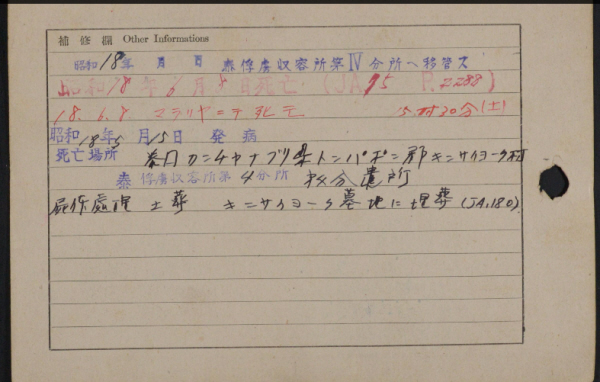 補修欄 Other Informations
昭和18年 月 日 泰俘虜収容所第Ⅳ分所ヘ移管ス
昭和18年6月8日死亡 (JA 95 P.2288)
18.6.8. マラリヤニテ死亡 5時30分(土)
昭和18年5月15日 発病
死亡場所 泰国カンチャナブリ県トンパポン郡キンサイヨーク村
泰俘虜収容所第4分所 分遣所
屍体處理 土葬 キンサイヨーク墓地ニ埋葬 (JA.180)